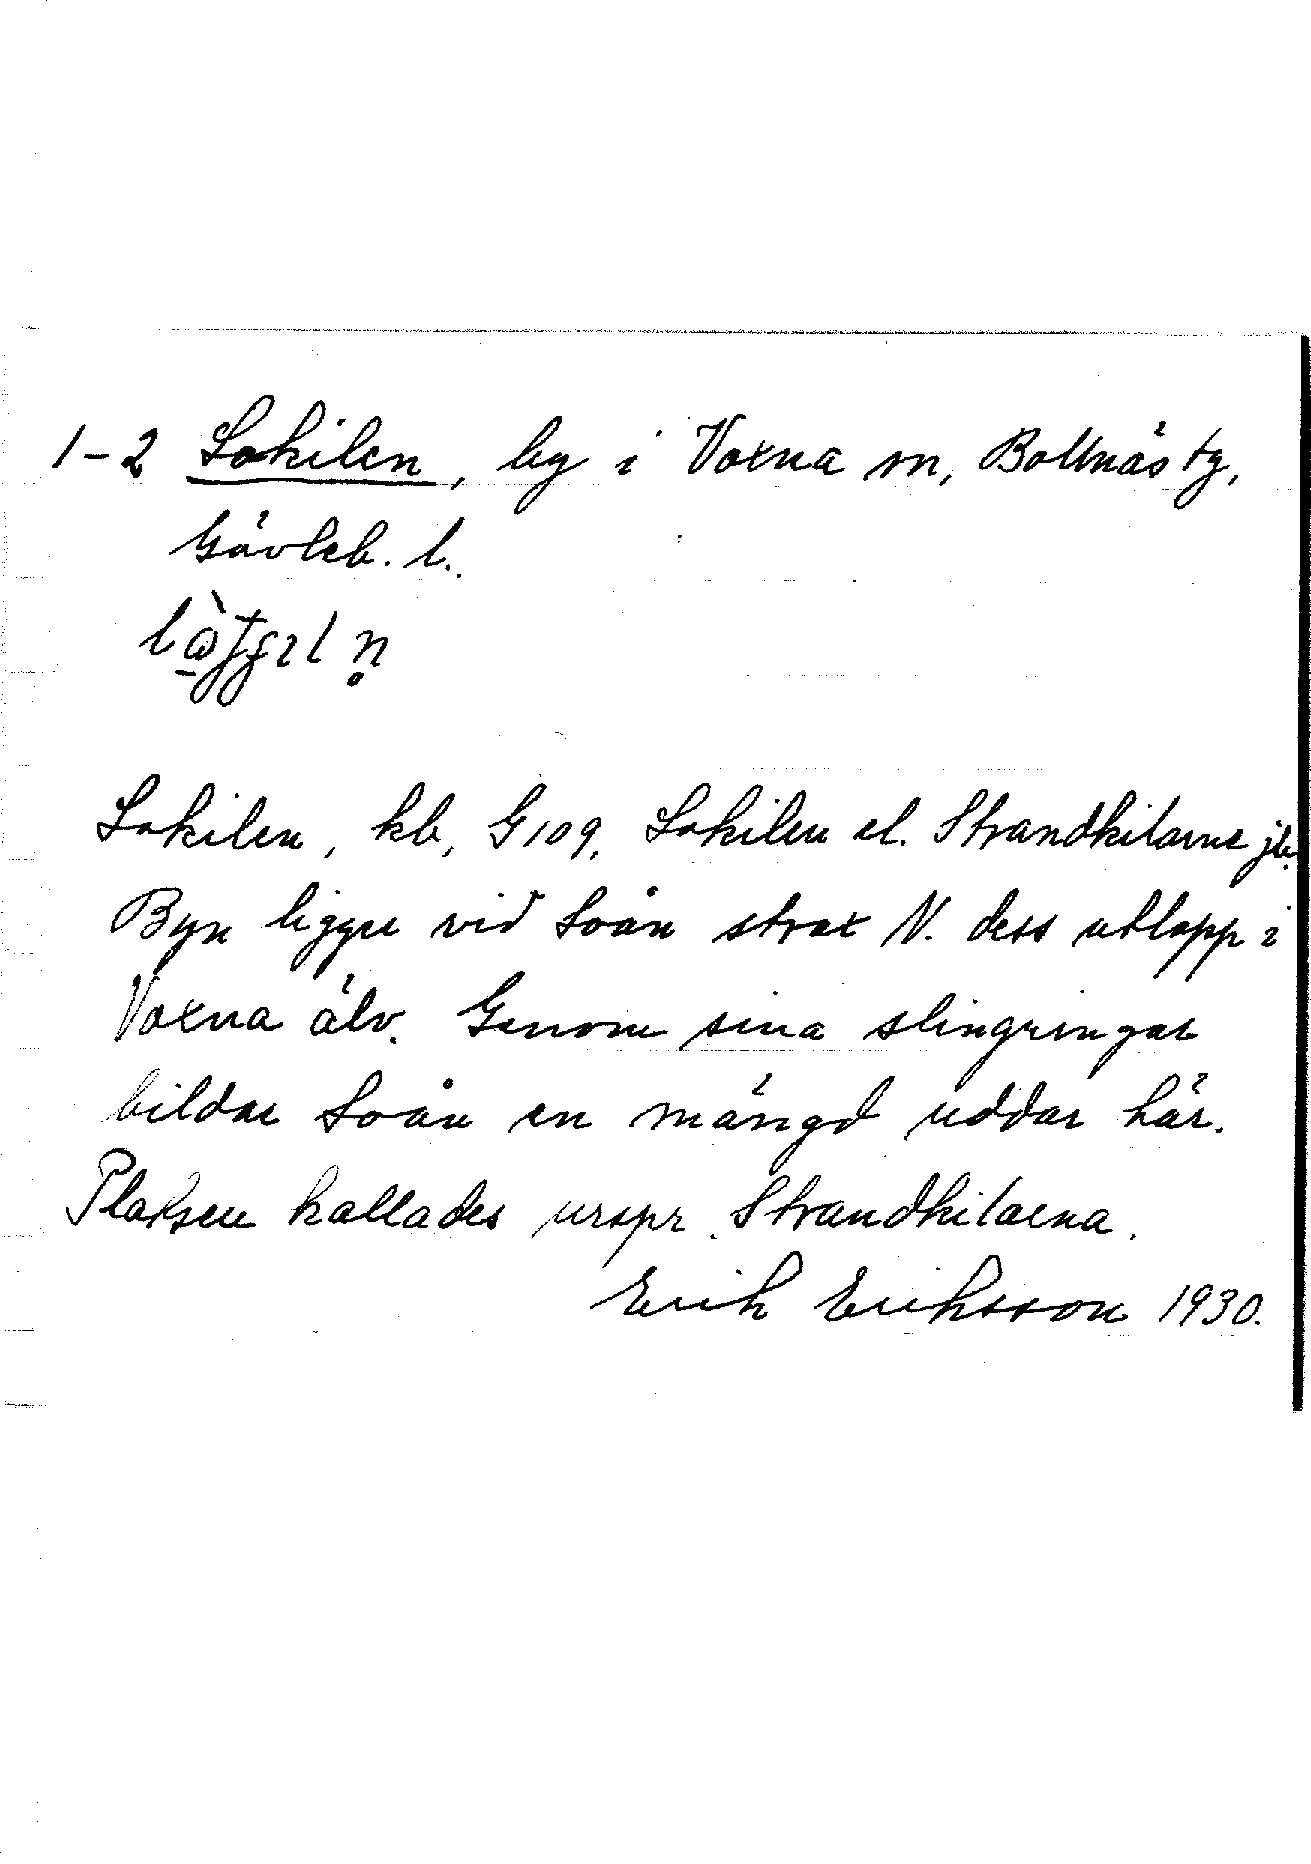 1-2 Lokilen, by i Voxna sn, Bollnäs tg,
Gävleb. l.
Lokilen, kb, G109, Lokilen el. Strandkilarne jb.
Byn ligger vid Loån strax N. dess utlopp i
Voxna älv. Genom sina slingringar
bildar Loån en mängd uddar här.
Platsen kallades urspr. Strandkilarna.
Erik Eriksson 1930.